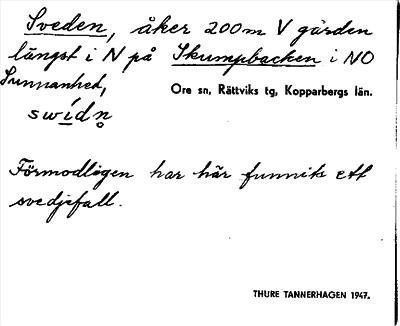 Sveden, åker 200m V gården
längst i N på Skumpbacken i NO
Sunnanhed,
Ore sn, Rättviks tg, Kopparbergs län.
swídn̥
Förmodligen har här funnits ett
svedjefall.
THURE TANNERHAGEN 1947.